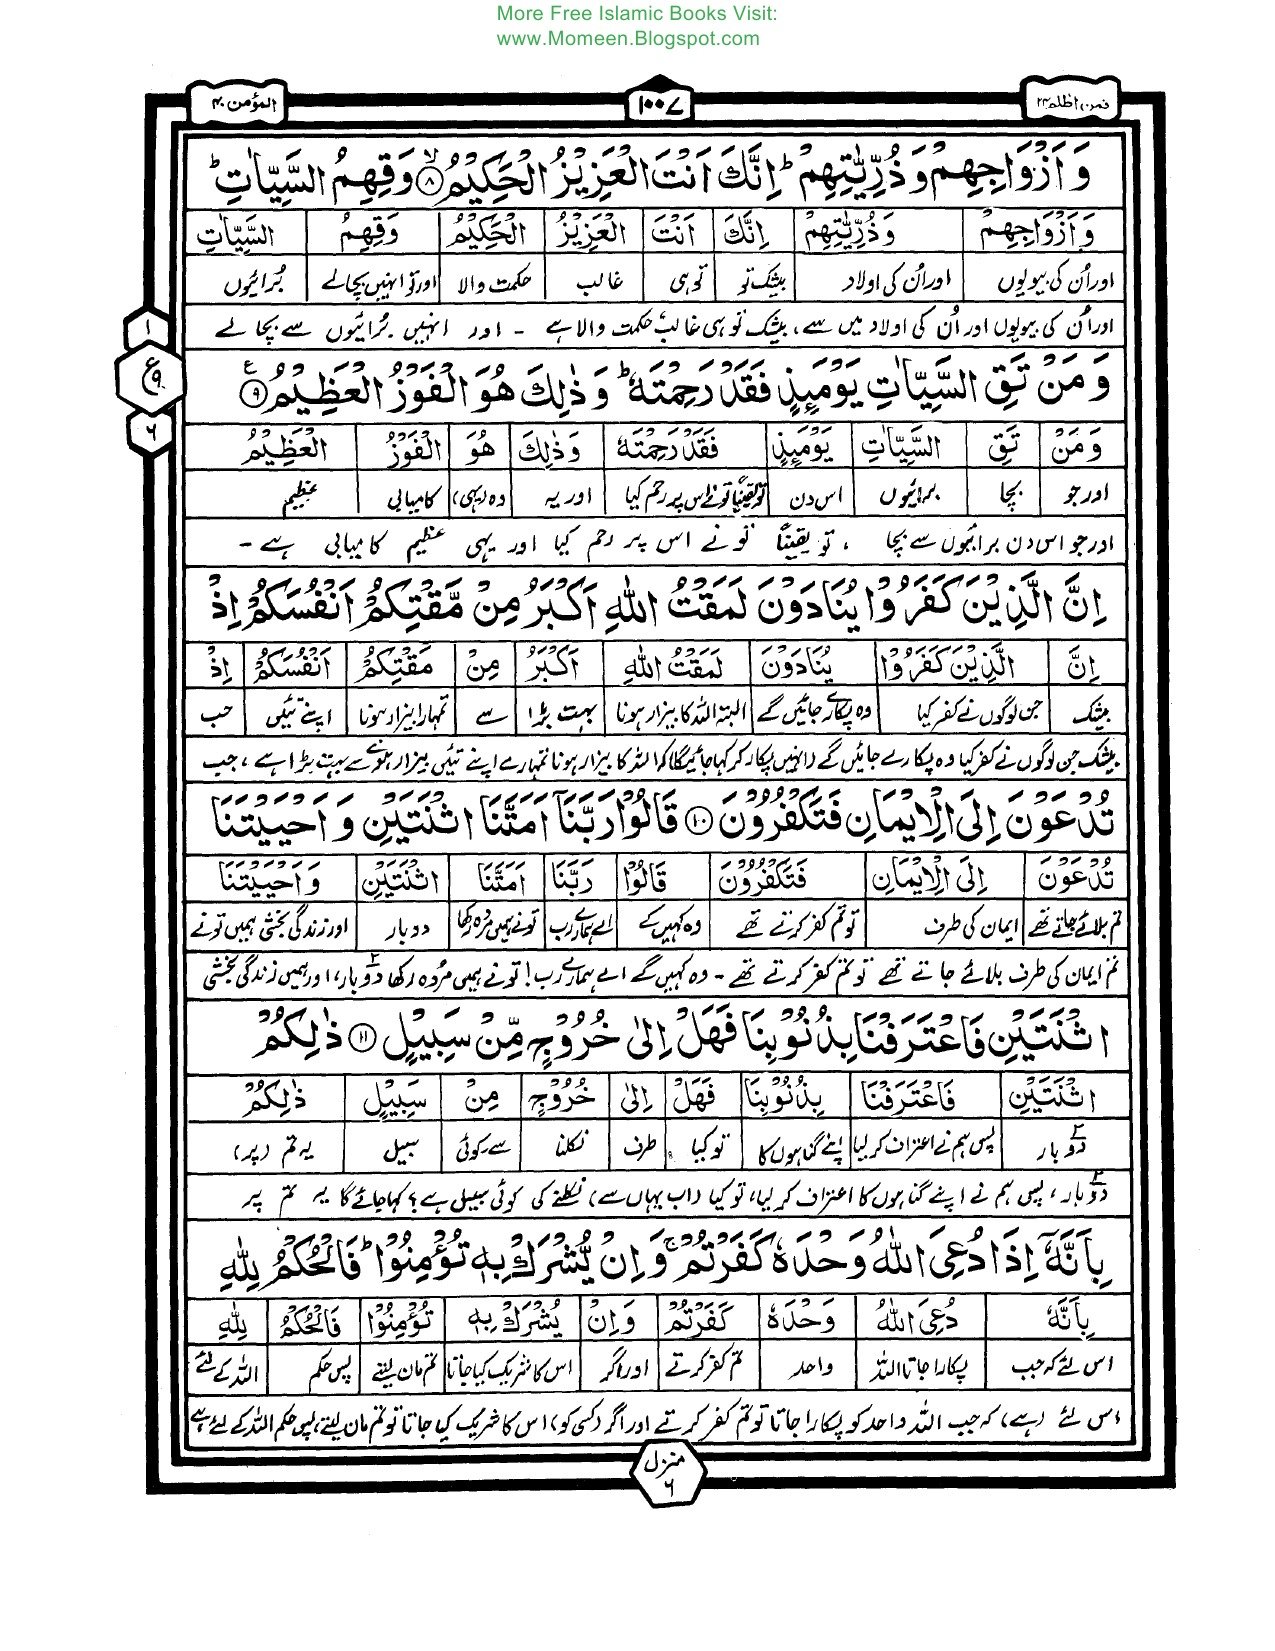 More Free Islamic Books Visit:
www.Momeen.Blogspot.com
فمن اظلم ۲۴
۱۰۰۷
المؤمن ۴۰
وَاَزْوَاجِهِمْ وَذُرِّيّٰتِهِمْ ؕ اِنَّكَ اَنْتَ الْعَزِيْزُ الْحَكِيْمُ ۙ ۸ وَقِهِمُ السَّيِّاٰتِ ؕ
وَاَزْوَاجِهِمْ وَذُرِّيّٰتِهِمْ اِنَّكَ اَنْتَ الْعَزِيْزُ الْحَكِيْمُ وَقِهِمُ السَّيِّاٰتِ
اور اُن کی بیویوں اور اُن کی اولاد بیشک تو تو ہی غالب حکمت والا اور تو انہیں بچا لے بُرائیوں
اور اُن کی بیویوں اور اُن کی اولاد میں سے، بیشک تو ہی غالب حکمت والا ہے - اور انہیں بُرائیوں سے بچا لے
۱
ع
۹
۶
وَمَنْ تَقِ السَّيِّاٰتِ يَوْمَئِذٍ فَقَدْ رَحِمْتَهٗ ؕ وَذٰلِكَ هُوَ الْفَوْزُ الْعَظِيْمُ ۹ ع
وَمَنْ تَقِ السَّيِّاٰتِ يَوْمَئِذٍ فَقَدْ رَحِمْتَهٗ وَذٰلِكَ هُوَ الْفَوْزُ الْعَظِيْمُ
اور جو بچا برائیوں اس دن تو یقیناً تو نے اس پر رحم کیا اور یہ وہ (یہی) کامیابی عظیم
اور جو اس دن برائیوں سے بچا ، تو یقیناً تو نے اس پر رحم کیا اور یہی عظیم کامیابی ہے -
اِنَّ الَّذِيْنَ كَفَرُوْا يُنَادَوْنَ لَمَقْتُ اللّٰهِ اَكْبَرُ مِنْ مَّقْتِكُمْ اَنْفُسَكُمْ اِذْ
اِنَّ الَّذِيْنَ كَفَرُوْا يُنَادَوْنَ لَمَقْتُ اللّٰهِ اَكْبَرُ مِنْ مَقْتِكُمْ اَنْفُسَكُمْ اِذْ
بیشک جن لوگوں نے کفر کیا وہ پکارے جائیں گے البتہ اللہ کا بیزار ہونا بہت بڑا سے تمہارا بیزار ہونا اپنے تئیں جب
بیشک جن لوگوں نے کفر کیا وہ پکارے جائیں گے (انہیں پکار کر کہا جائیگا) کہ اللہ کا بیزار ہونا تمہارے اپنے تئیں بیزار ہونے سے بہت بڑا ہے ، جب
تُدْعَوْنَ اِلَى الْاِيْمَانِ فَتَكْفُرُوْنَ ۱۰ قَالُوْا رَبَّنَآ اَمَتَّنَا اثْنَتَيْنِ وَاَحْيَيْتَنَا
تُدْعَوْنَ اِلَى الْاِيْمَانِ فَتَكْفُرُوْنَ قَالُوْا رَبَّنَا اَمَتَّنَا اثْنَتَيْنِ وَاَحْيَيْتَنَا
تم بلائے جاتے تھے ایمان کی طرف تو تم کفر کرتے تھے وہ کہیں گے اے ہمارے رب تو نے ہمیں مردہ رکھا دو بار اور زندگی بخشی ہمیں تو نے
تم ایمان کی طرف بلائے جاتے تھے تو تم کفر کرتے تھے - وہ کہیں گے اے ہمارے رب! تو نے ہمیں مُردہ رکھا دو بار، اور ہمیں زندگی بخشی
اثْنَتَيْنِ فَاعْتَرَفْنَا بِذُنُوْبِنَا فَهَلْ اِلٰى خُرُوْجٍ مِّنْ سَبِيْلٍ ۱۱ ذٰلِكُمْ
اثْنَتَيْنِ فَاعْتَرَفْنَا بِذُنُوْبِنَا فَهَلْ اِلٰى خُرُوْجٍ مِنْ سَبِيْلٍ ذٰلِكُمْ
دو بار پس ہم نے اعتراف کر لیا اپنے گناہوں کا تو کیا طرف نکلنا سے۔کوئی سبیل یہ تم (پر)
دو بار، پس ہم نے اپنے گناہوں کا اعتراف کر لیا، تو کیا (اب یہاں سے) نکلنے کی کوئی سبیل ہے؟ کہا جائے گا یہ تم پر
بِاَنَّهٗٓ اِذَا دُعِيَ اللّٰهُ وَحْدَهٗ كَفَرْتُمْ ۚ وَاِنْ يُّشْرَكْ بِهٖ تُؤْمِنُوْا ؕ فَالْحُكْمُ لِلّٰهِ
بِاَنَّهٗ دُعِيَ اللّٰهُ وَحْدَهٗ كَفَرْتُمْ وَاِنْ يُشْرَكْ بِهٖ تُؤْمِنُوْا فَالْحُكْمُ لِلّٰهِ
اس لئے کہ جب پکارا جاتا اللہ واحد تم کفر کرتے اور اگر اس کا شریک کیا جاتا تم مان لیتے پس حکم اللہ کے لئے
اس لئے (ہے) کہ جب اللہ واحد کو پکارا جاتا تو تم کفر کرتے اور اگر (کسی کو) اس کا شریک کیا جاتا تو تم مان لیتے، پس حکم اللہ کے لئے ہے
منزل
۶